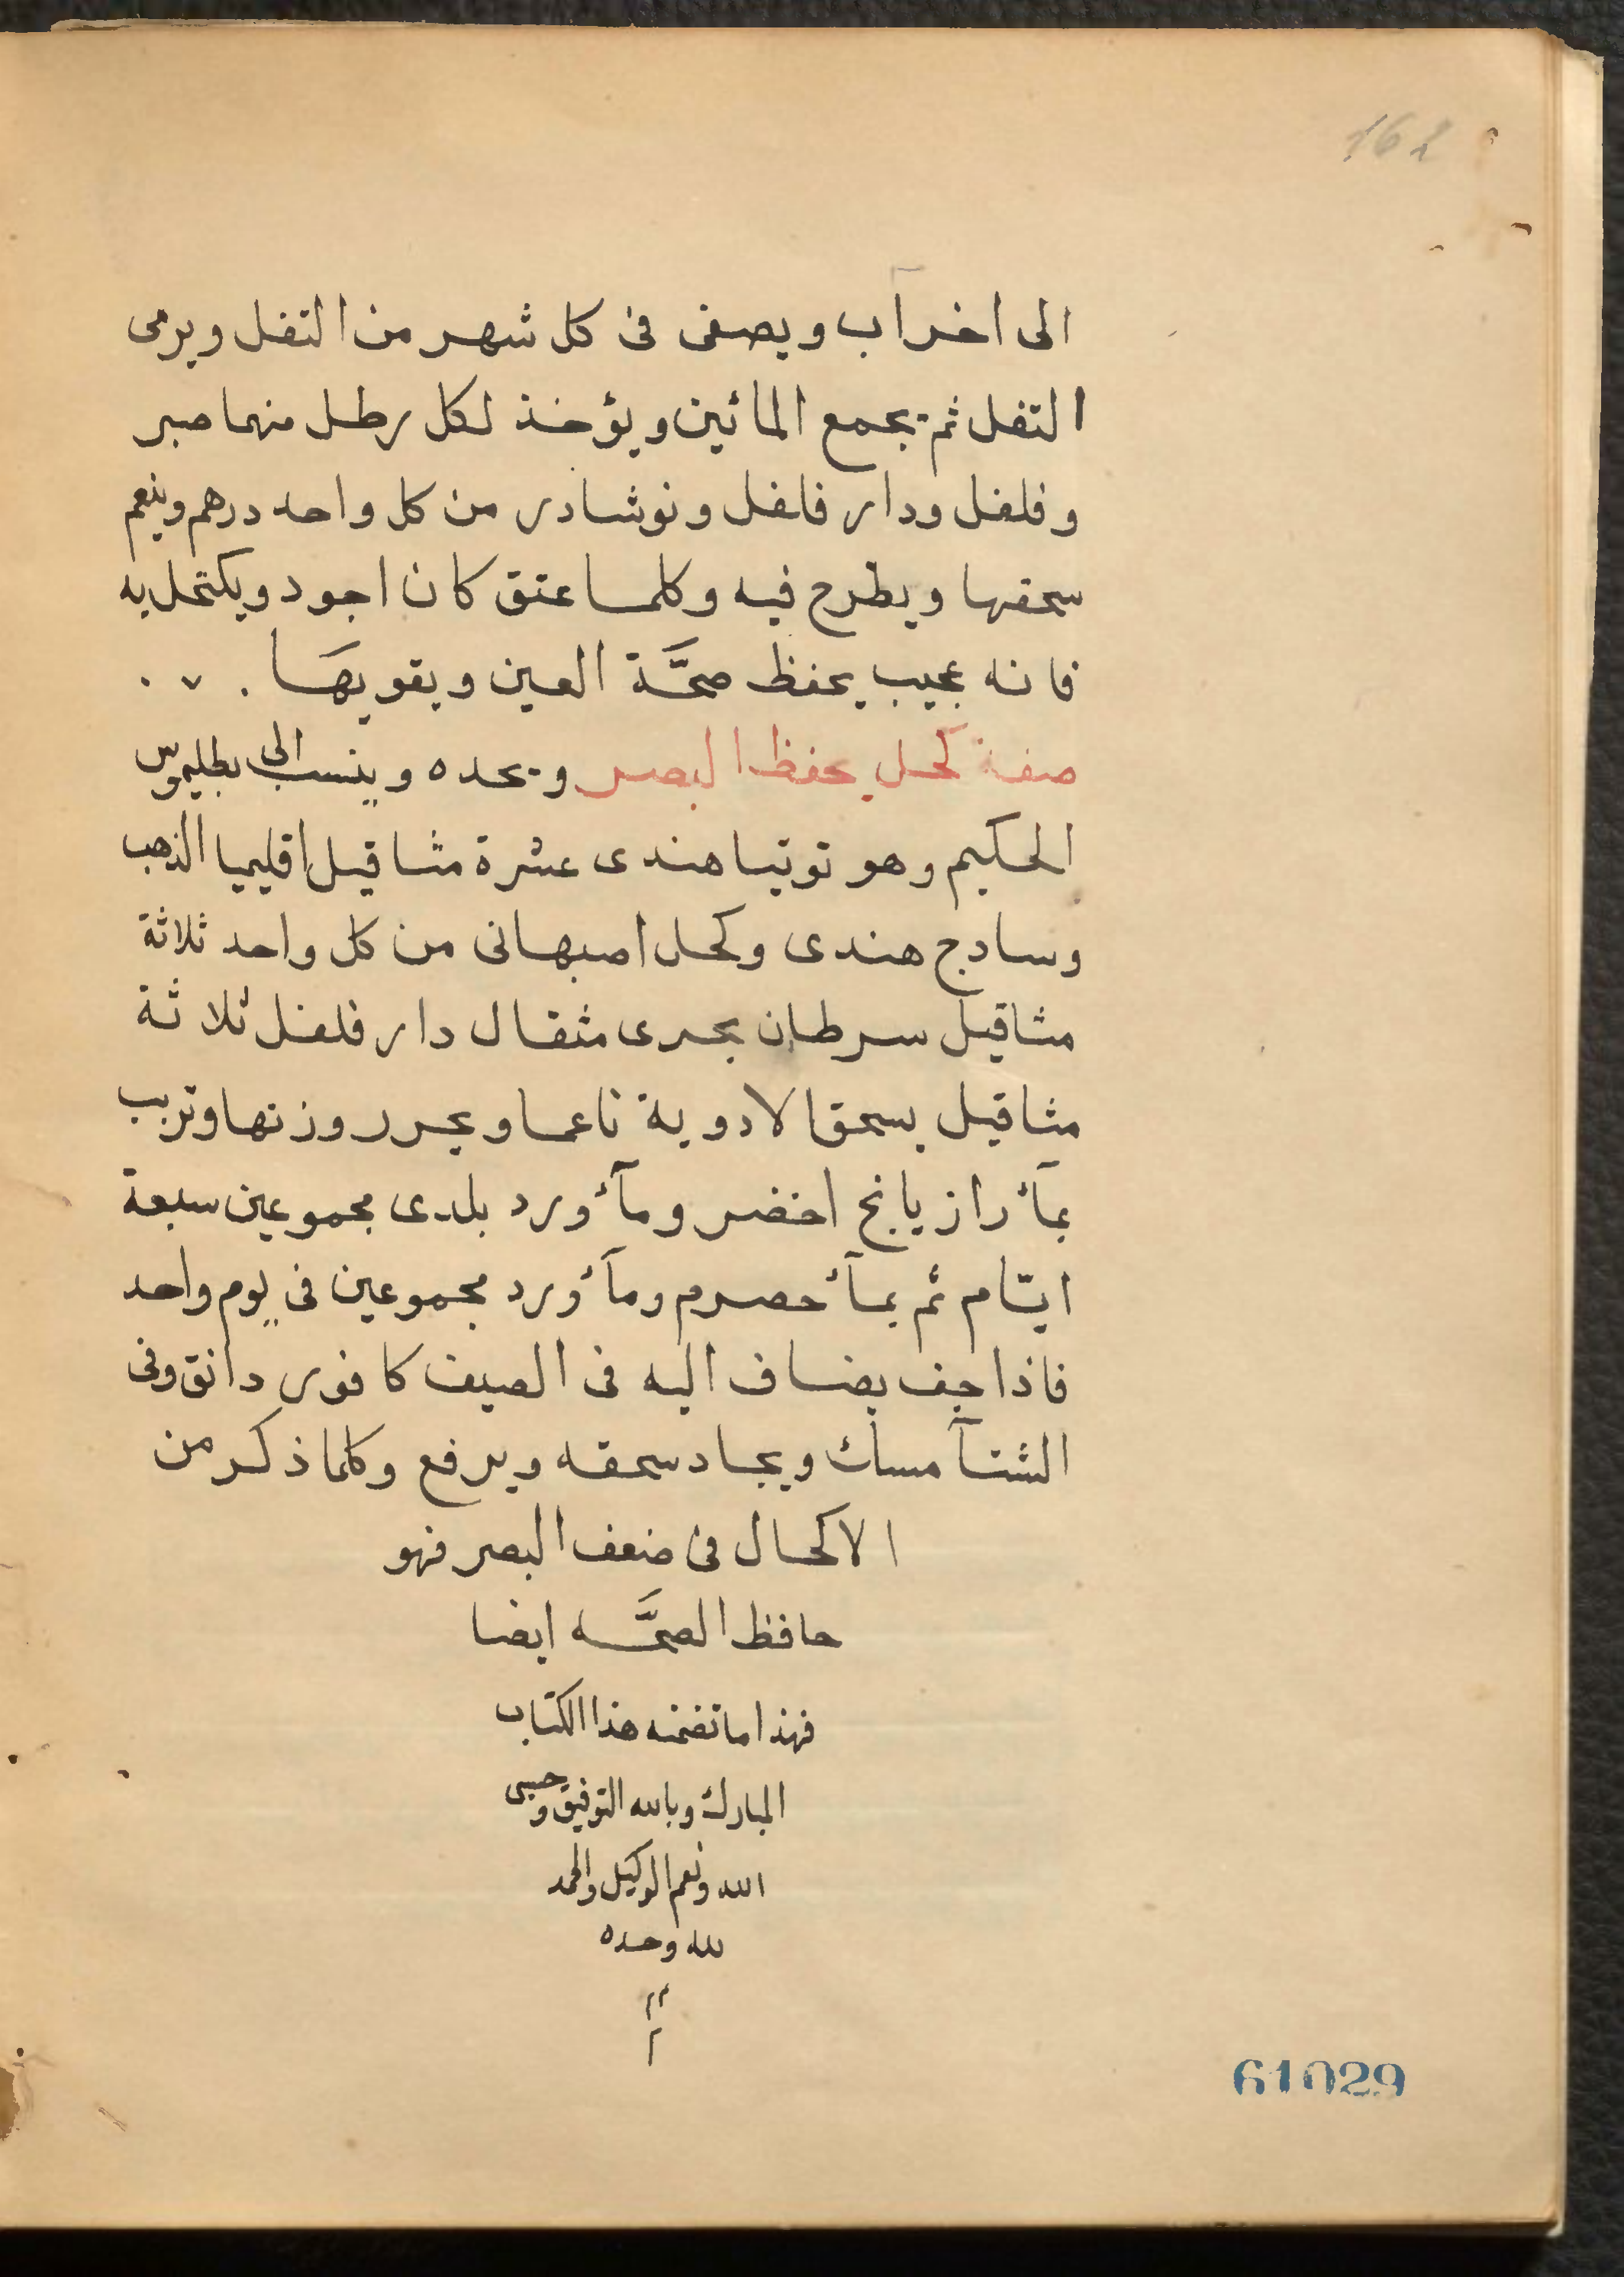 162
الى اخر آب ويصفى فى كل شهر من التفل ويرمى
التفل ثم يجمع المائين ويؤخذ لكل رطل منهما صبر
وفلفل ودار فلفل ونوشادر من كل واحد درهم وينعم
سحقها ويطرح فيه وكلما عتق كان اجود ويكتحل به
فانه عجيب يحفظ صحَّة العين ويقويهَا
صفة كحل يحفظ البصر ويحده وينسب الى بطليموس
الحكيم وهو توتيا هندى عشرة مثاقيل اقليميا الذهب
وسادج هندى وكحل اصبهانى من كل واحد ثلاثة
مثاقيل سرطان بحرى مثقال دار فلفل ثلاثة
مثاقيل يسحق الادوية ناعما ويحرر وزنها وتربب
بمآء رازيانج اخضر ومآء ورد بلدى مجموعين سبعة
ايّام ثم بمآء حصرم ومآء ورد مجموعين فى يوم واحد
فاذا جف يضاف اليه فى الصيف كافور دانق وفى
الشتآ مسك ويجاد سحقه ويرفع وكلما ذكر من
الاكحال فى ضعف البصر فهو
حافظ الصحَّه ايضا
فهذا ما تضمنه هذا الكتاب
المبارك وبالله التوفيق وحسبى
الله ونعم الوكيل والحمد
لله وحده
61029